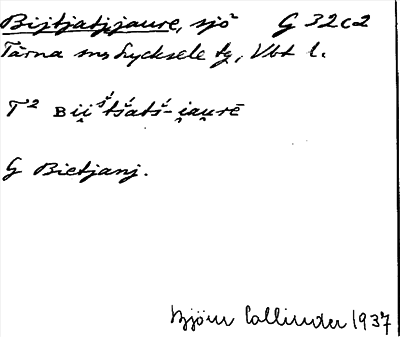 Bijtjatjjaure, sjö G 32c2
Tärna sn, Lycksele tg, Vbt l.
T² Bii̯štšatš-i̯au̯rē
G Bietjanj.
Björn Collinder 1937